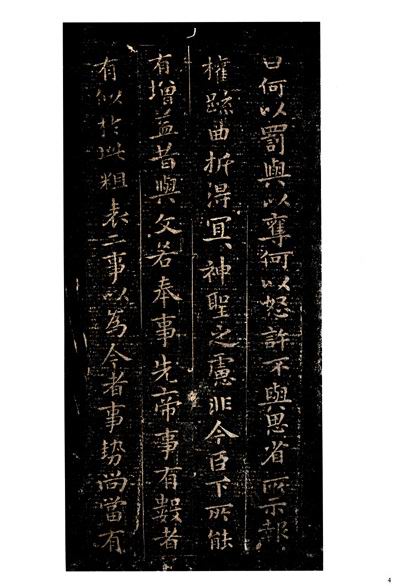 曰何以罰與以奪何以怒許不與思省所示報
權疏曲折得冝、神聖之慮非今臣下所能
有增益昔與文若奉事先帝事有數者
有似於此粗表二事以為今者事勢尚當有
4